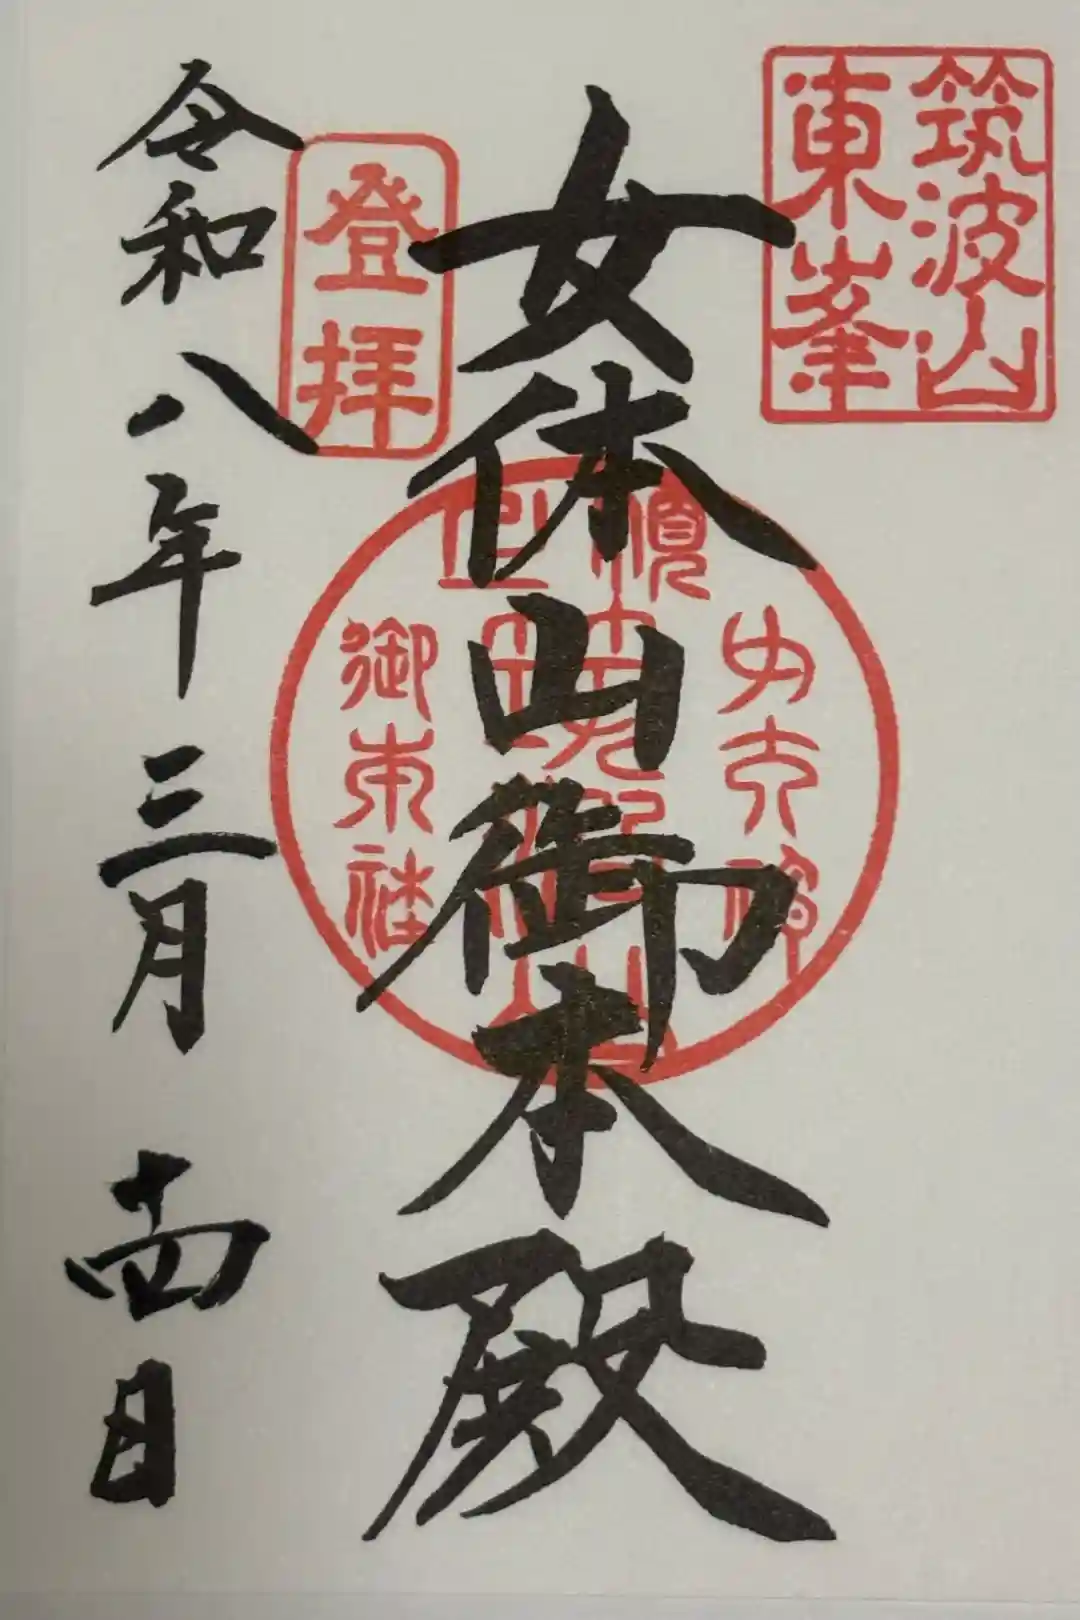 筑波山
東峯
女体山御本殿
登拝
令和八年三月十四日
御東社